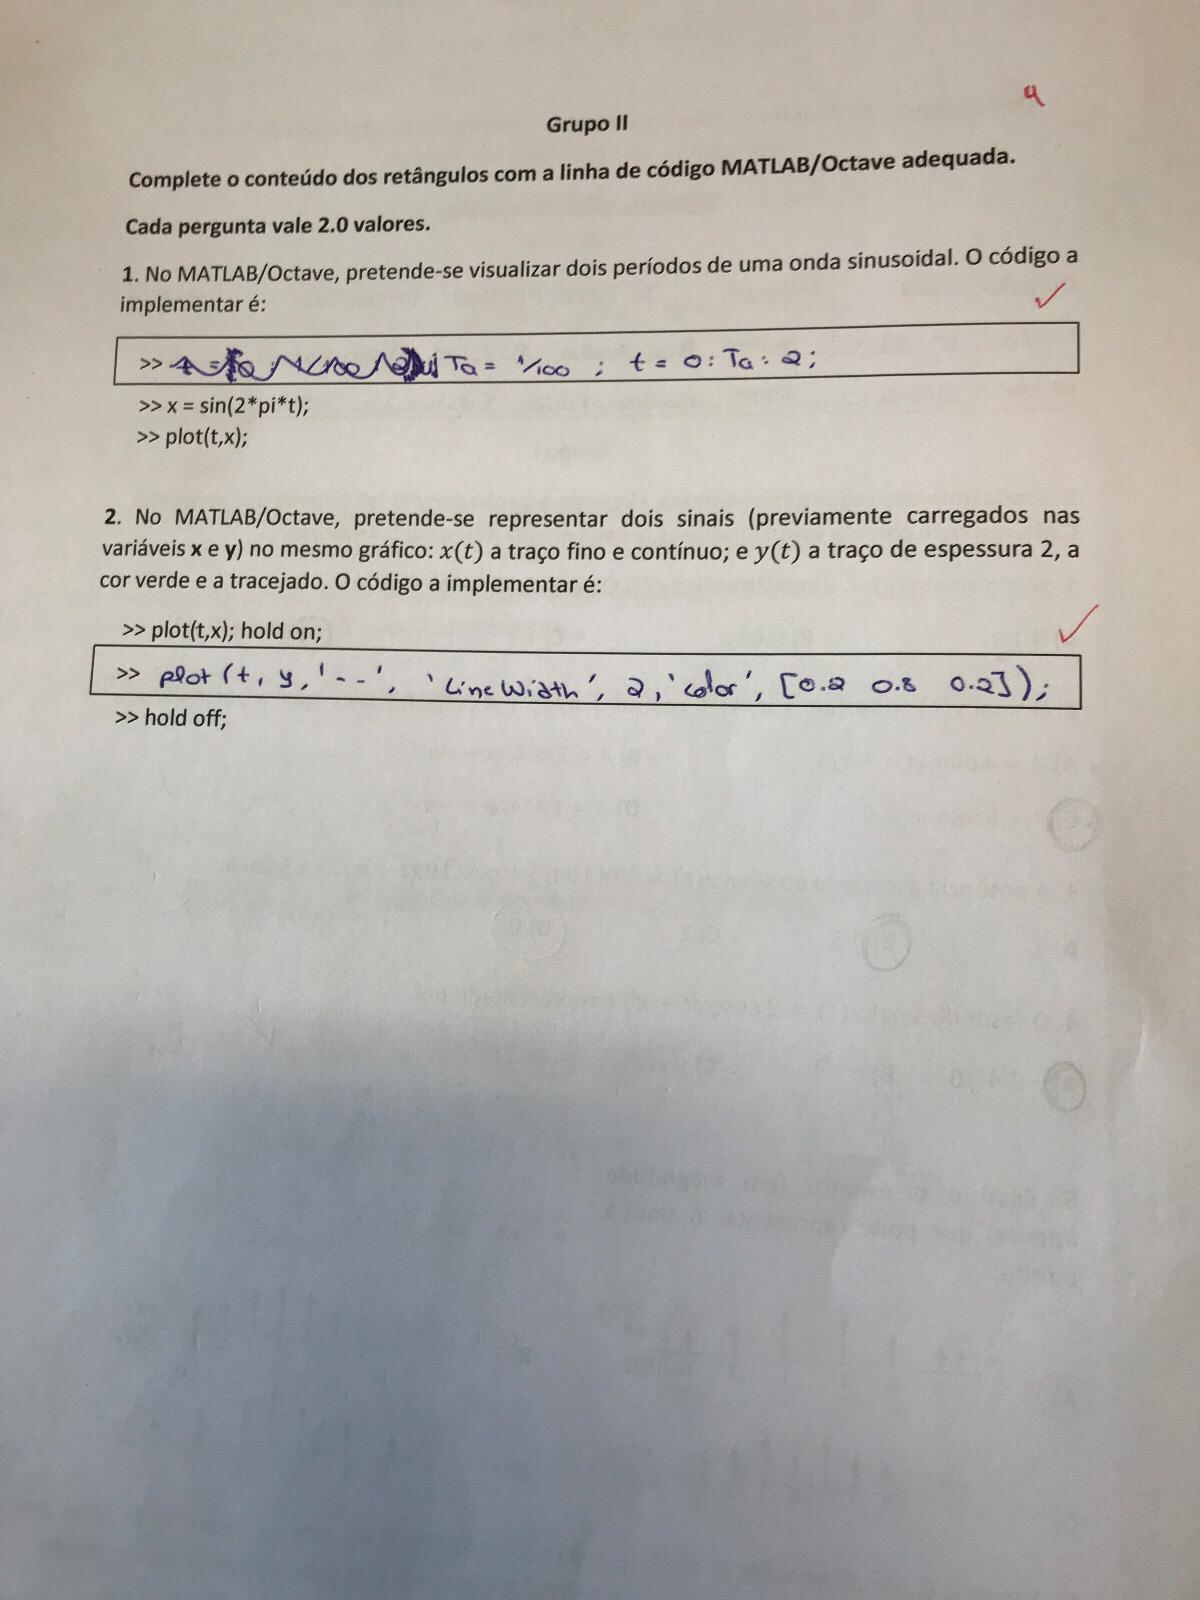 4
Grupo II
Complete o conteúdo dos retângulos com a linha de código MATLAB/Octave adequada.
Cada pergunta vale 2.0 valores.
1. No MATLAB/Octave, pretende-se visualizar dois períodos de uma onda sinusoidal. O código a
implementar é:
>> Ta = 1/100 ; t = 0 : Ta : 2;
>> x = sin(2*pi*t);
>> plot(t,x);
2. No MATLAB/Octave, pretende-se representar dois sinais (previamente carregados nas
variáveis x e y) no mesmo gráfico: x(t) a traço fino e contínuo; e y(t) a traço de espessura 2, a
cor verde e a tracejado. O código a implementar é:
>> plot(t,x); hold on;
>> plot(t, y, '--', 'LineWidth', 2, 'color', [0.2 0.8 0.2]);
>> hold off;